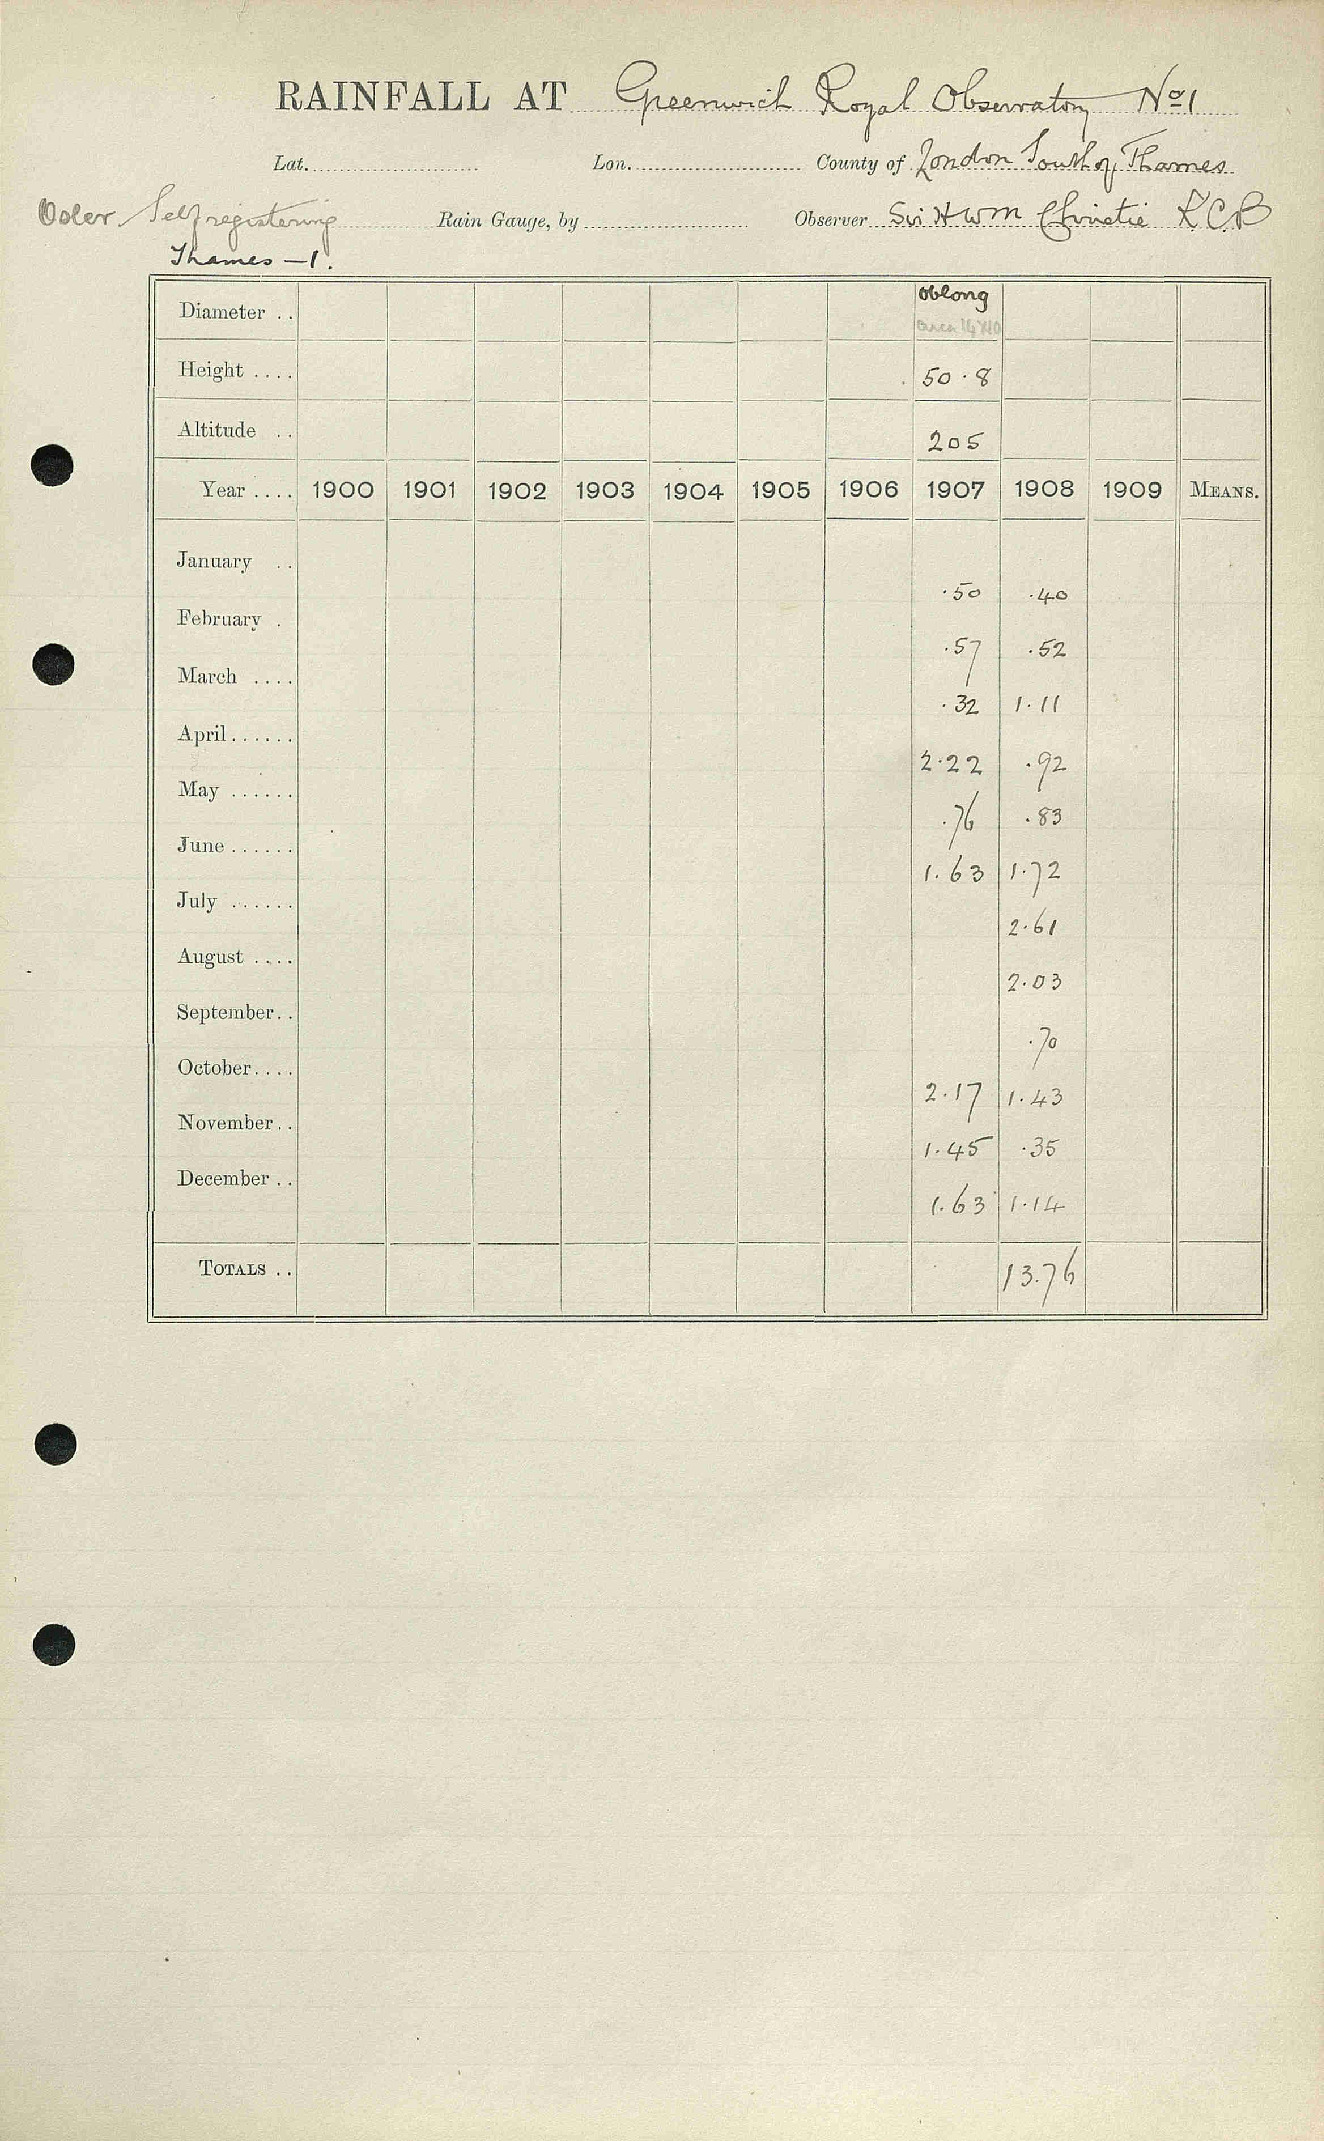 RAINFALL AT Greenwich Royal Observatory No 1
Lat. Lon. County of London South of Thames
Osler Self registering Rain Gauge, by Observer Sir H W M Christie K C B
Thames — 1.
Diameter .. oblong
circa 14 x 10
Height .... 50.8
Altitude .. 205
Year .... 1900 1901 1902 1903 1904 1905 1906 1907 1908 1909 MEANS.
January .. .50 .40
February . .57 .52
March .... .32 1.11
April...... 2.22 .92
May ...... .76 .83
June ...... 1.63 1.72
July ...... 2.61
August .... 2.03
September.. .70
October.... 2.17 1.43
November.. 1.45 .35
December .. 1.63 1.14
TOTALS .. 13.76